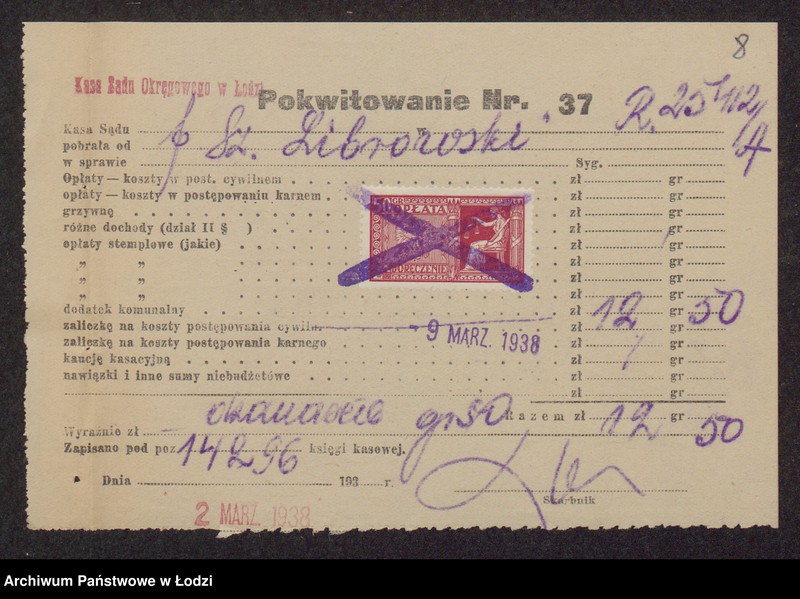 8
Kasa Sądu Okręgowego w Łodzi
Pokwitowanie Nr. 37
R. 25
Kasa Sądu
pobrała od Sz. Librowski
w sprawie Syg.
Opłaty — koszty w post. cywilnem zł gr
opłaty — koszty w postępowaniu karnem zł gr
grzywnę zł gr
różne dochody (dział II § ) zł gr
opłaty stemplowe (jakie) zł gr
„ „ zł gr
„ „ zł gr
„ „ zł gr
50 GR OPŁATA
DORĘCZENIE
dodatek komunalny zł 12 gr 50
zaliczkę na koszty postępowania cywiln. zł gr
9 MARZ. 1938
zaliczkę na koszty postępowania karnego zł gr
kaucję kasacyjną zł gr
nawiązki i inne sumy niebudżetowe zł gr
Razem zł 12 gr 50
Wyraźnie zł dwanaście gr 50
Zapisano pod poz 14296 księgi kasowej.
Dnia 193 r.
Skarbnik
2 MARZ. 1938
Archiwum Państwowe w Łodzi